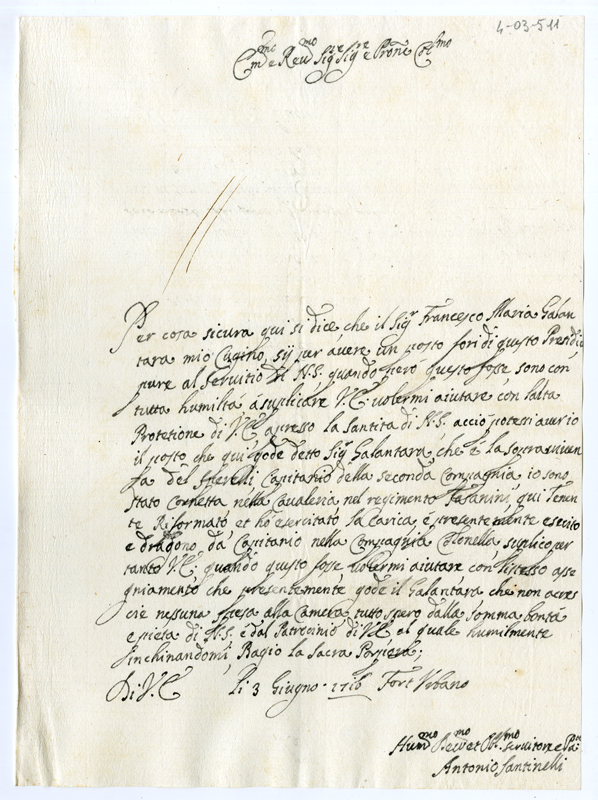 4-03-511
Em.mo e Reu.mo Sig.re Sig.re e Prone Col.mo
Per cosa sicura qui si dice che il Sig.r Francesco Maria Galan
tara mio Cugino, sij per avere un posto fori di questo Presidio
pure al servitio di N.S. quando però questo fosse sono con
tutta humiltà à suplicare V.E. volermi aiutare con l'alta
Protetione di V.E. apresso la santità di N.S. acciò potessi avere io
il posto che qui gode detto Sig.r Galantara, che è la sopraviven
za del Capitanio della seconda Compagnia, io sono
stato Cornetta nella Cavaleria nel regimento qui Tenen
te Reformato et hò esercitato la carica, e presentemente esercito
e dragono da Capitanio nella Compagnia Colonella, suplico per
tanto V.E. quando questo fosse volermi aiutare con l'istesso asse
gniamento che presentemente gode il Galantara che non acres
cie nessuna spesa alla Camera, tutto spero dalla somma bontà
e pietà di N.S. e dal Patrocinio di V.E. al quale humilmente
inchinandomi, Bagio la Sacra Porpora;
Di V.E. li 3 Giugno 1716 Fort Urbano
Hum.mo Dev.mo et Obl.mo servitore
Antonio Santinelli